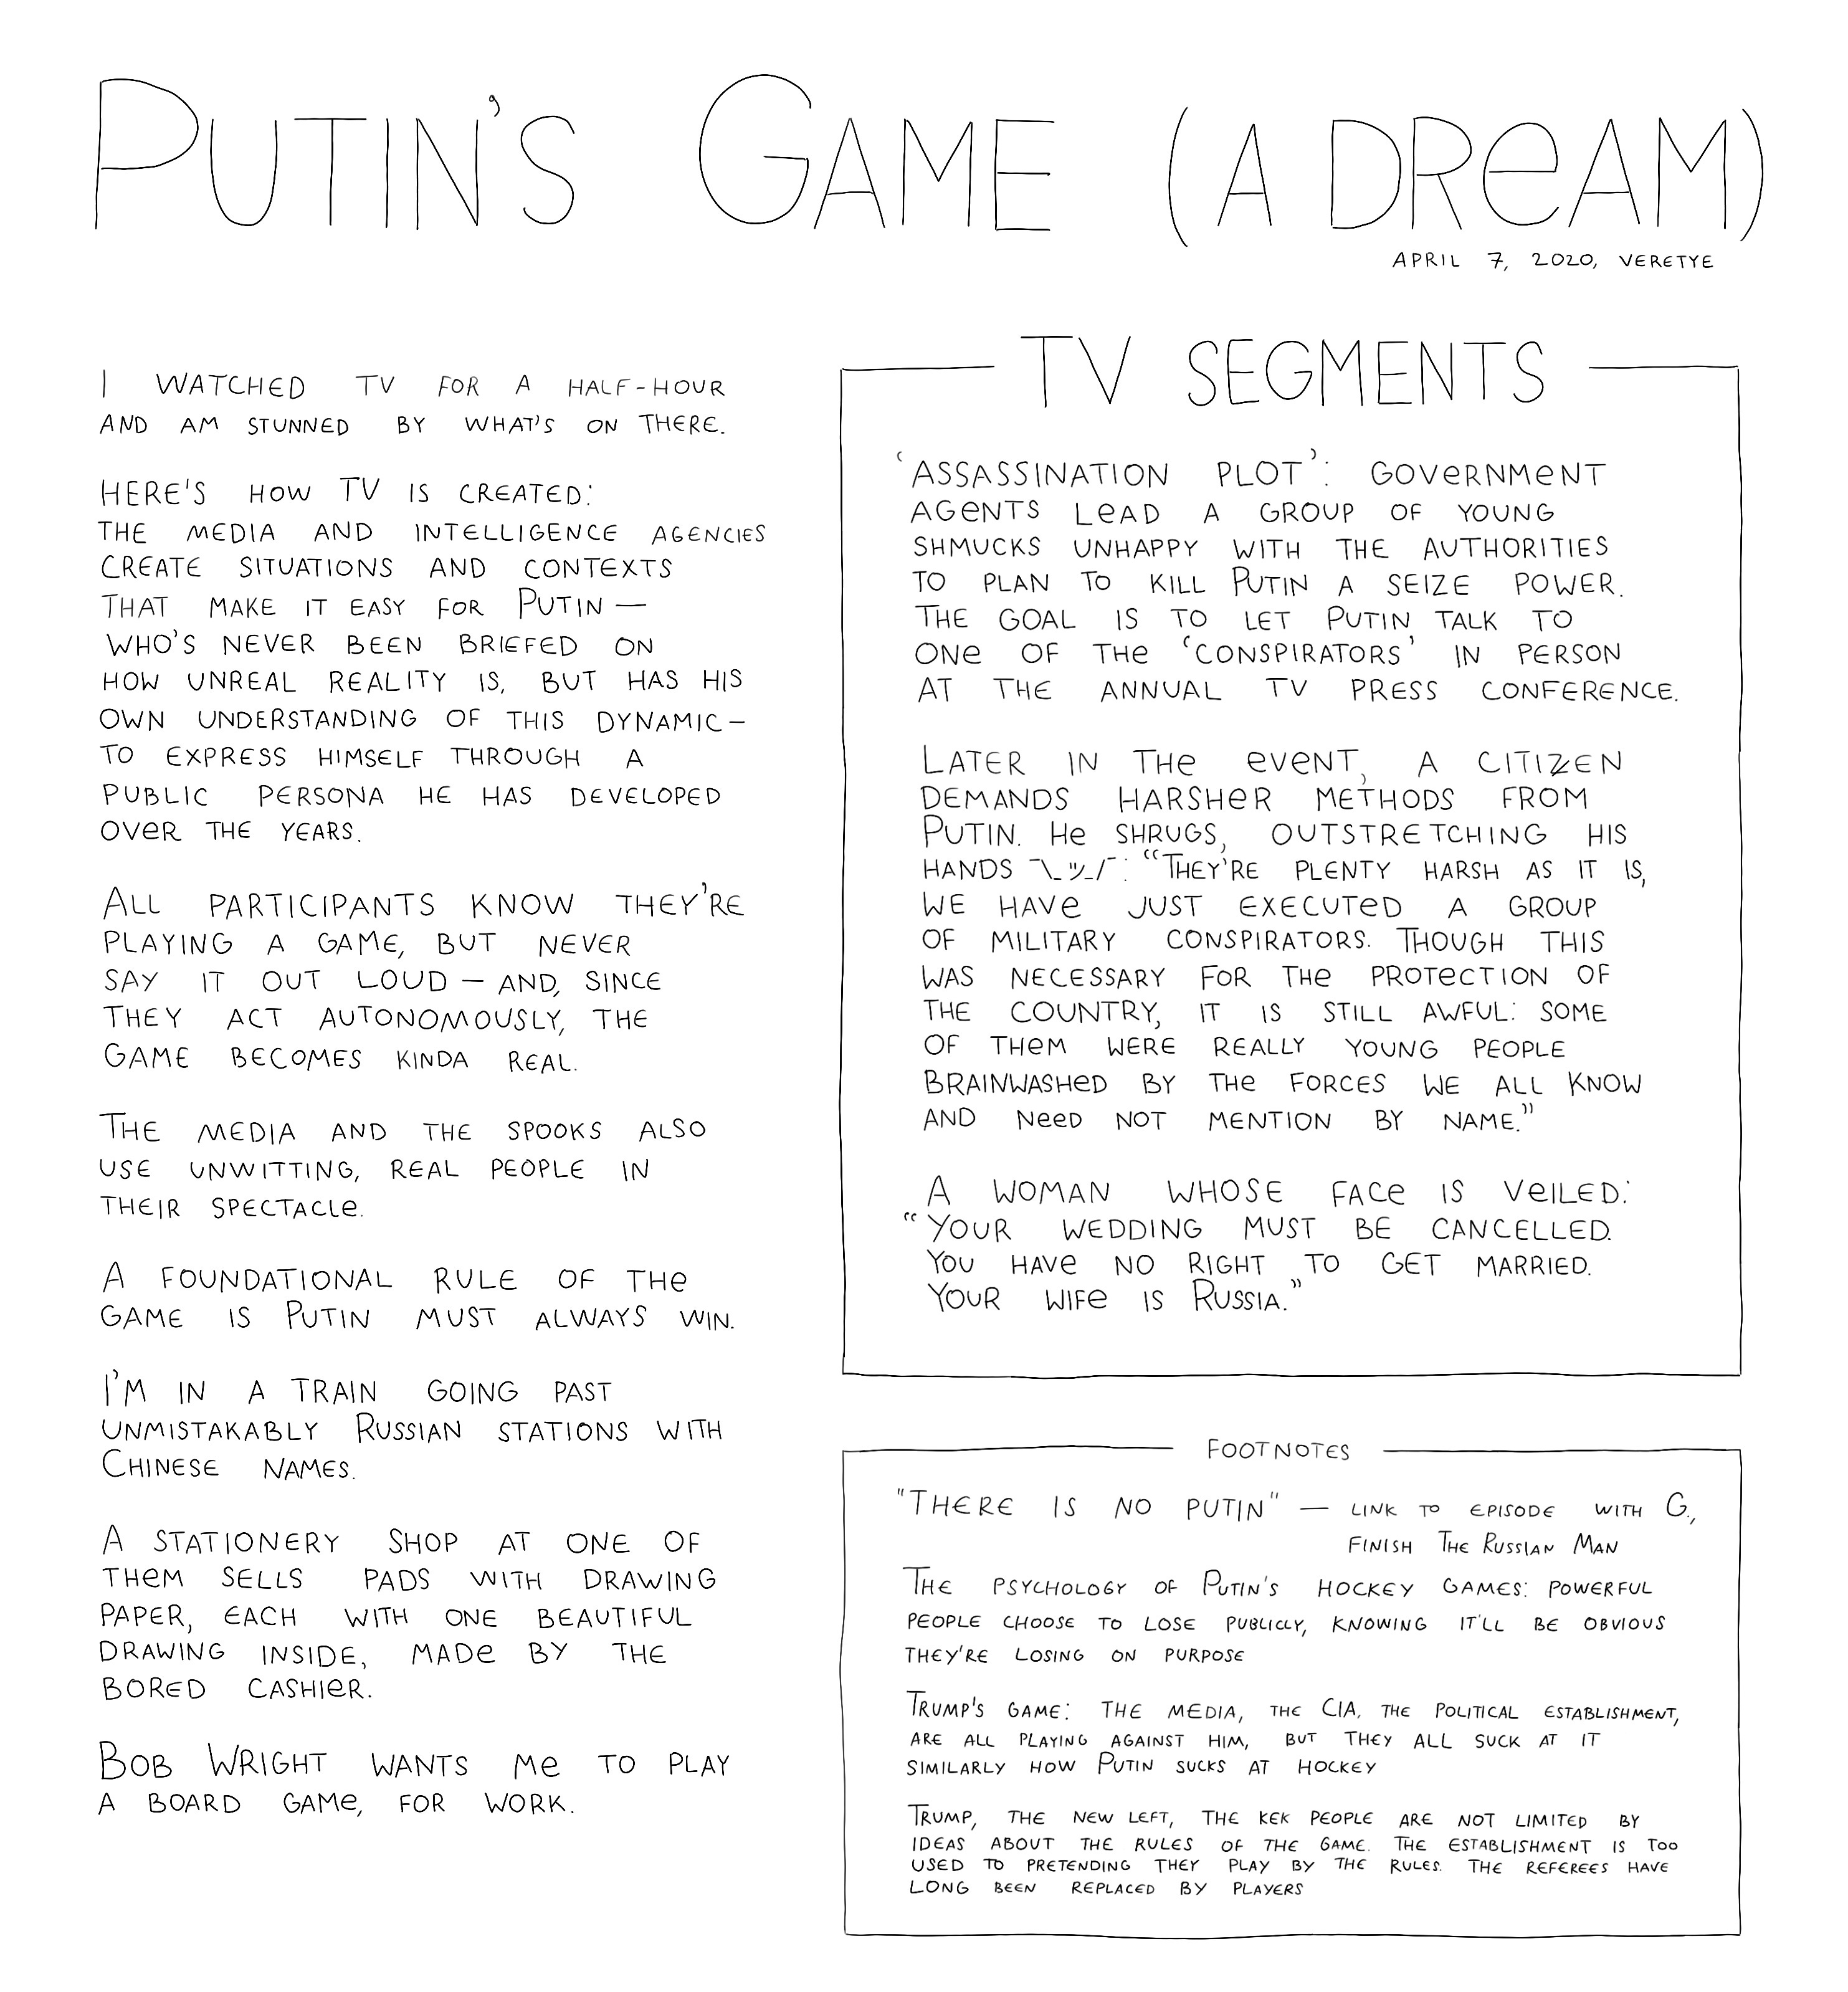 PUTIN'S GAME (A DREAM)
APRIL 7, 2020, VERETYE
I WATCHED TV FOR A HALF-HOUR
AND AM STUNNED BY WHAT'S ON THERE.
HERE'S HOW TV IS CREATED:
THE MEDIA AND INTELLIGENCE AGENCIES
CREATE SITUATIONS AND CONTEXTS
THAT MAKE IT EASY FOR PUTIN —
WHO'S NEVER BEEN BRIEFED ON
HOW UNREAL REALITY IS, BUT HAS HIS
OWN UNDERSTANDING OF THIS DYNAMIC —
TO EXPRESS HIMSELF THROUGH A
PUBLIC PERSONA HE HAS DEVELOPED
OVER THE YEARS.
ALL PARTICIPANTS KNOW THEY'RE
PLAYING A GAME, BUT NEVER
SAY IT OUT LOUD — AND, SINCE
THEY ACT AUTONOMOUSLY, THE
GAME BECOMES KINDA REAL.
THE MEDIA AND THE SPOOKS ALSO
USE UNWITTING, REAL PEOPLE IN
THEIR SPECTACLE.
A FOUNDATIONAL RULE OF THE
GAME IS PUTIN MUST ALWAYS WIN.
I'M IN A TRAIN GOING PAST
UNMISTAKABLY RUSSIAN STATIONS WITH
CHINESE NAMES.
A STATIONERY SHOP AT ONE OF
THEM SELLS PADS WITH DRAWING
PAPER, EACH WITH ONE BEAUTIFUL
DRAWING INSIDE, MADE BY THE
BORED CASHIER.
BOB WRIGHT WANTS ME TO PLAY
A BOARD GAME, FOR WORK.
TV SEGMENTS
'ASSASSINATION PLOT': GOVERNMENT
AGENTS LEAD A GROUP OF YOUNG
SHMUCKS UNHAPPY WITH THE AUTHORITIES
TO PLAN TO KILL PUTIN A SEIZE POWER.
THE GOAL IS TO LET PUTIN TALK TO
ONE OF THE 'CONSPIRATORS' IN PERSON
AT THE ANNUAL TV PRESS CONFERENCE.
LATER IN THE EVENT, A CITIZEN
DEMANDS HARSHER METHODS FROM
PUTIN. HE SHRUGS, OUTSTRETCHING HIS
HANDS ¯\_ツ_/¯: "THEY'RE PLENTY HARSH AS IT IS,
WE HAVE JUST EXECUTED A GROUP
OF MILITARY CONSPIRATORS. THOUGH THIS
WAS NECESSARY FOR THE PROTECTION OF
THE COUNTRY, IT IS STILL AWFUL: SOME
OF THEM WERE REALLY YOUNG PEOPLE
BRAINWASHED BY THE FORCES WE ALL KNOW
AND NEED NOT MENTION BY NAME."
A WOMAN WHOSE FACE IS VEILED:
"YOUR WEDDING MUST BE CANCELLED.
YOU HAVE NO RIGHT TO GET MARRIED.
YOUR WIFE IS RUSSIA."
FOOTNOTES
"THERE IS NO PUTIN" — LINK TO EPISODE WITH G.,
FINISH THE RUSSIAN MAN
THE PSYCHOLOGY OF PUTIN'S HOCKEY GAMES: POWERFUL
PEOPLE CHOOSE TO LOSE PUBLICLY, KNOWING IT'LL BE OBVIOUS
THEY'RE LOSING ON PURPOSE
TRUMP'S GAME: THE MEDIA, THE CIA, THE POLITICAL ESTABLISHMENT,
ARE ALL PLAYING AGAINST HIM, BUT THEY ALL SUCK AT IT
SIMILARLY HOW PUTIN SUCKS AT HOCKEY
TRUMP, THE NEW LEFT, THE KEK PEOPLE ARE NOT LIMITED BY
IDEAS ABOUT THE RULES OF THE GAME. THE ESTABLISHMENT IS TOO
USED TO PRETENDING THEY PLAY BY THE RULES. THE REFEREES HAVE
LONG BEEN REPLACED BY PLAYERS